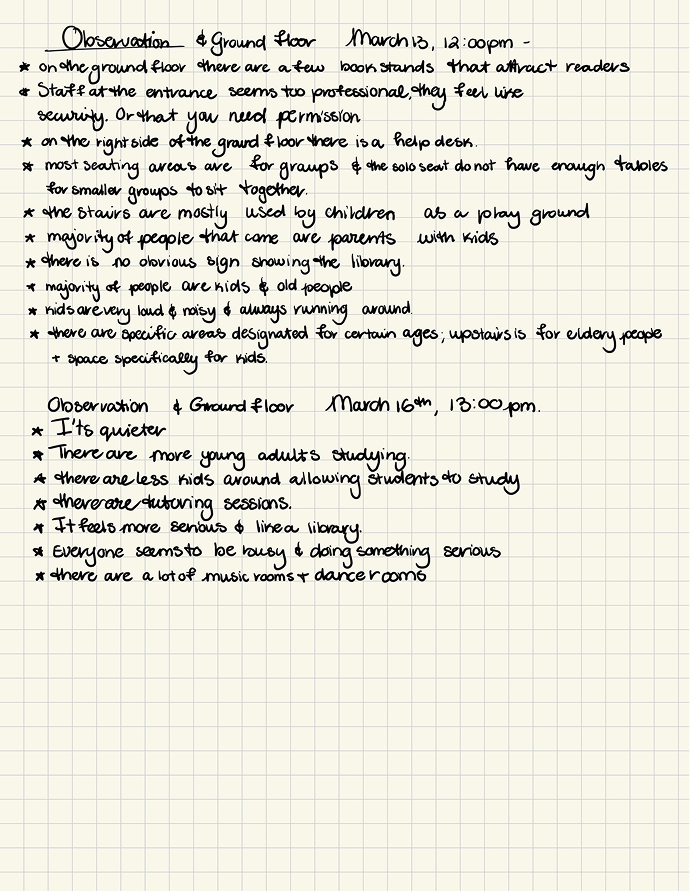 Observation & Ground floor March 13, 12:00pm -
* on the ground floor there are a few book stands that attract readers
* Staff at the entrance seems too professional, they feel like
security. Or that you need permission
* on the right side of the ground floor there is a help desk.
* most seating areas are for groups & the solo seat do not have enough tables
for smaller groups to sit together.
* the stairs are mostly used by children as a play ground
* majority of people that come are parents with kids
* there is no obvious sign showing the library.
* majority of people are kids & old people
* kids are very loud & noisy & always running around.
* there are specific areas designated for certain ages; upstairs is for eldery people
+ space specifically for kids.
Observation & Ground floor March 16th, 13:00pm.
* I'ts quieter
* There are more young adults studying.
* there are less kids around allowing students to study
* there are tutoring sessions.
* It feels more serious & like a library.
* Everyone seems to be busy & doing something serious
* there are a lot of music rooms + dance rooms